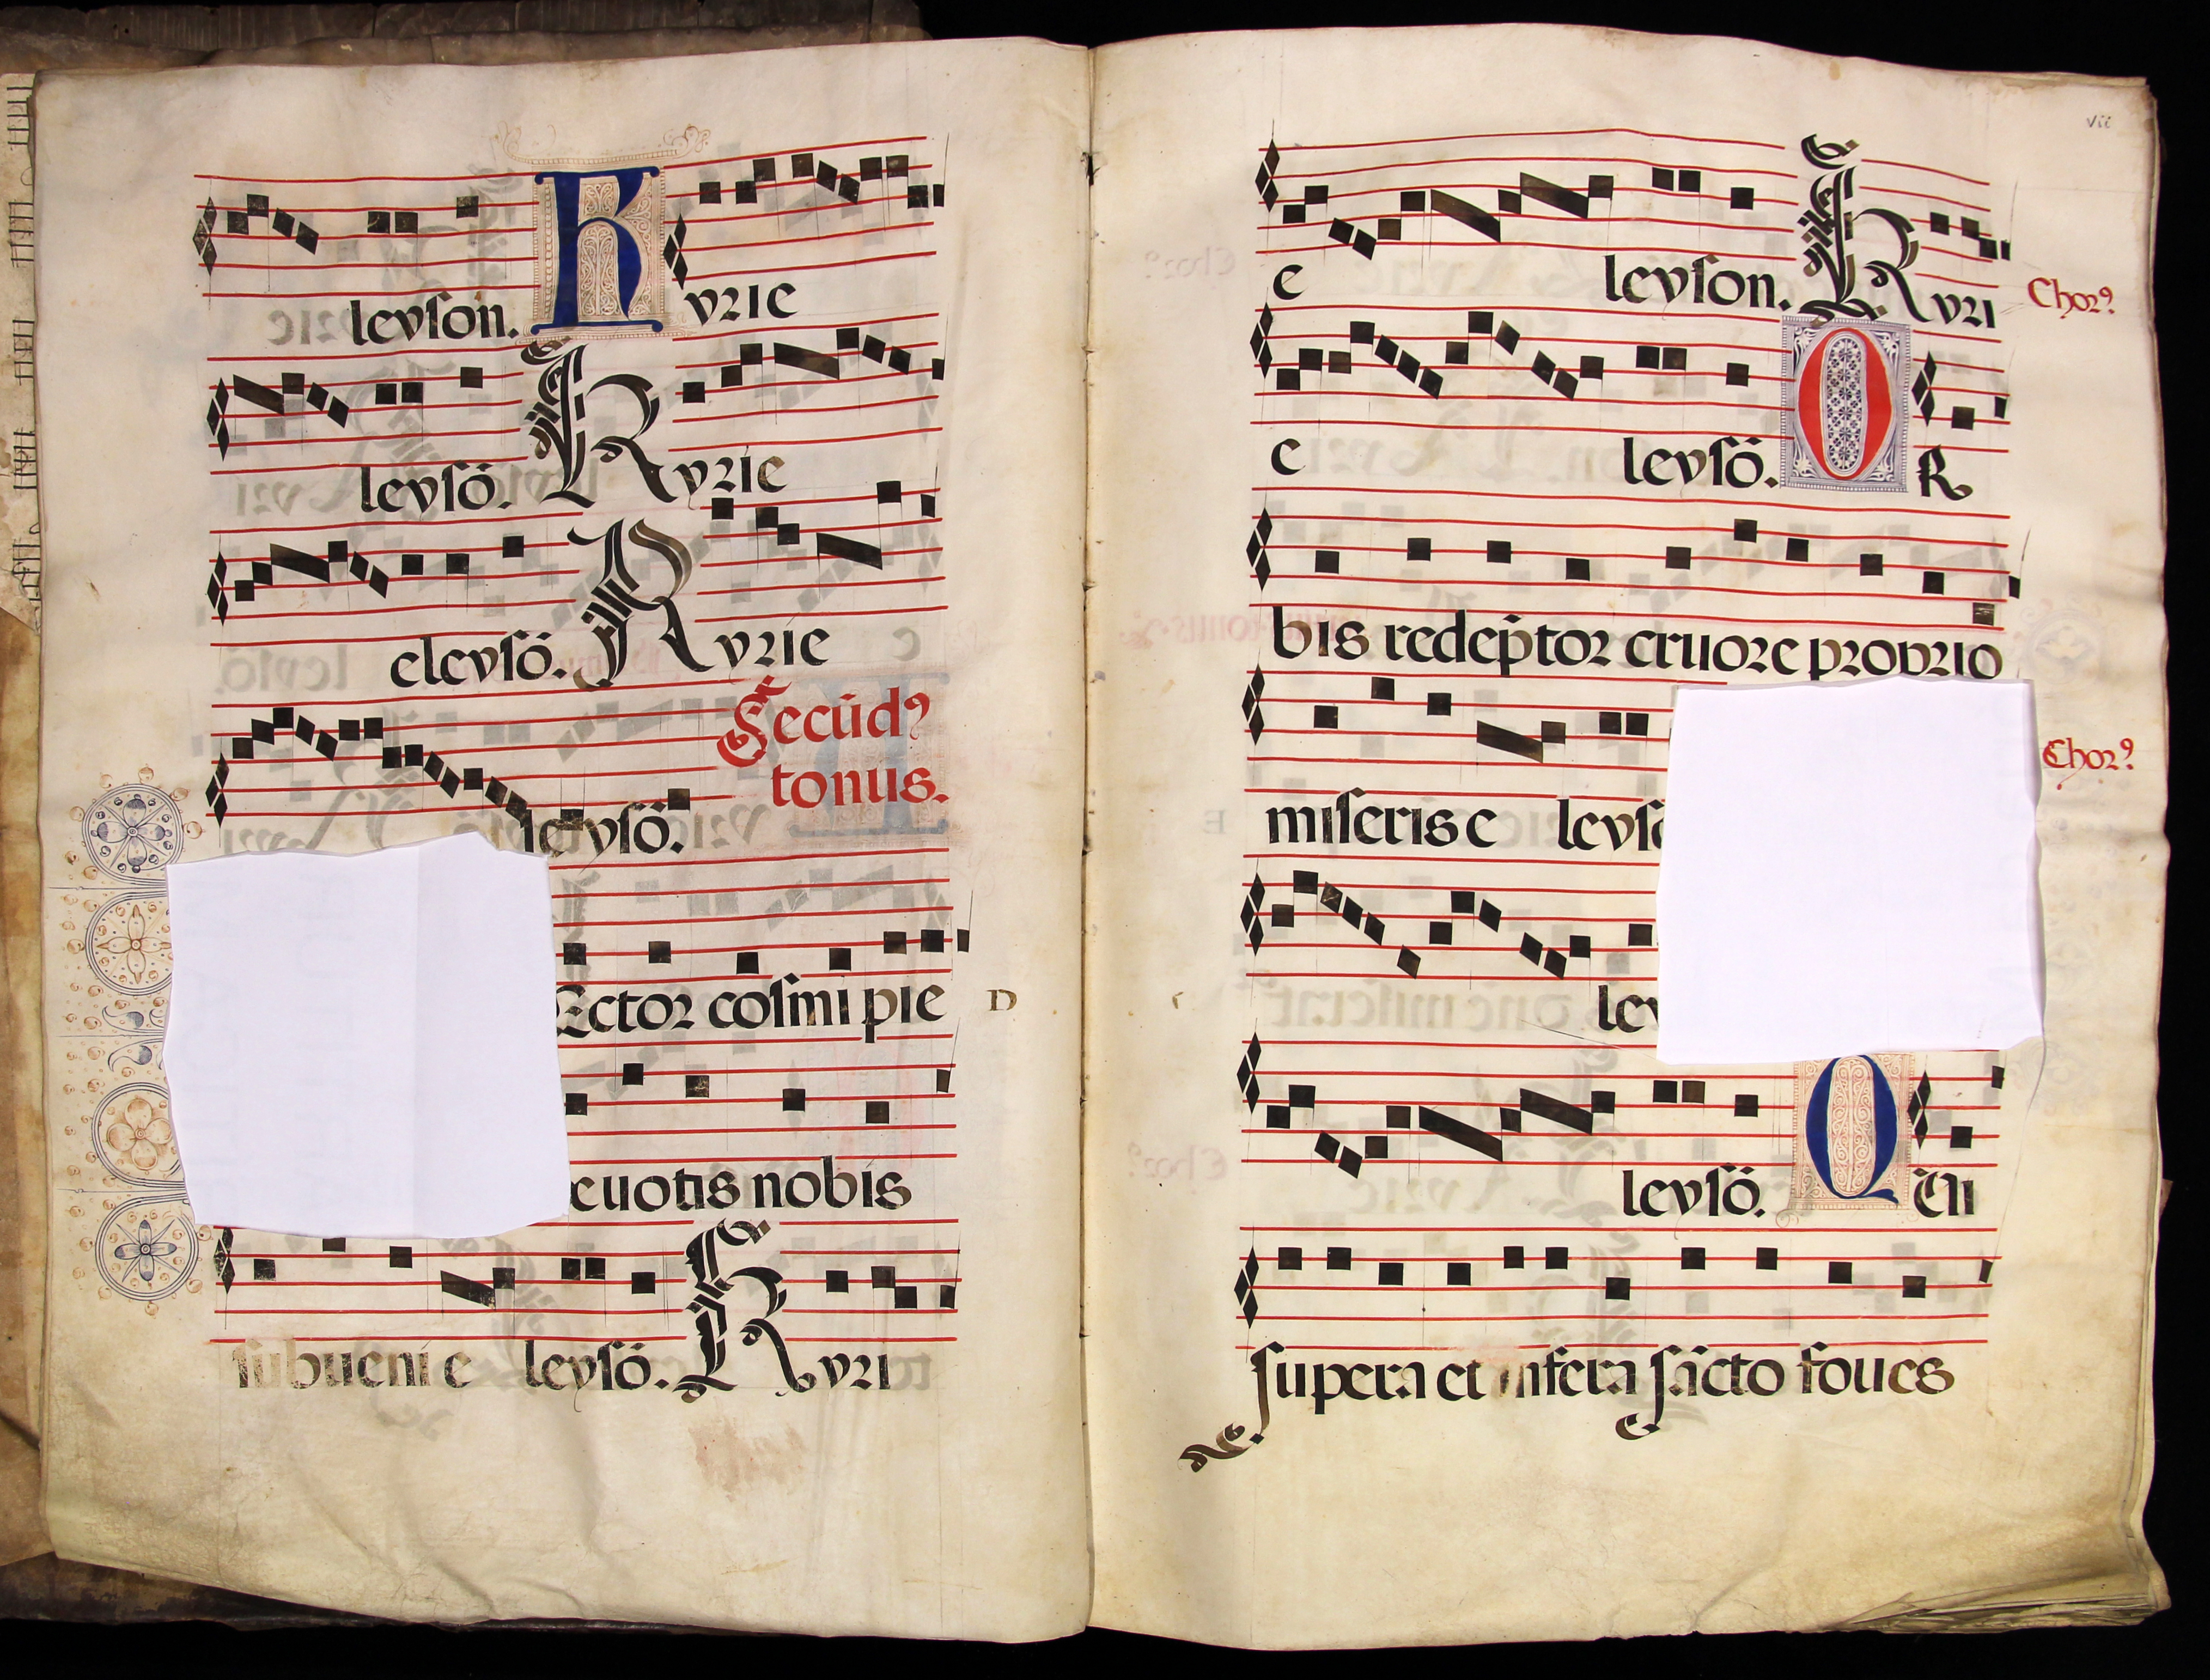 leyson. Kyrie
leysō. Kyrie
eleysō. Kyrie
Secūdꝰ
tonus.
leysō.
Rector cosmi pie
euotis nobis
subueni e leysō. Kyri
D
vii
e leyson. Kyri
Chorꝰ
e leysō. OR
bis redēptor cruore proprio
miseris e leyso
Chorꝰ
ley
leysō. Qui
supera et infera sācto foues